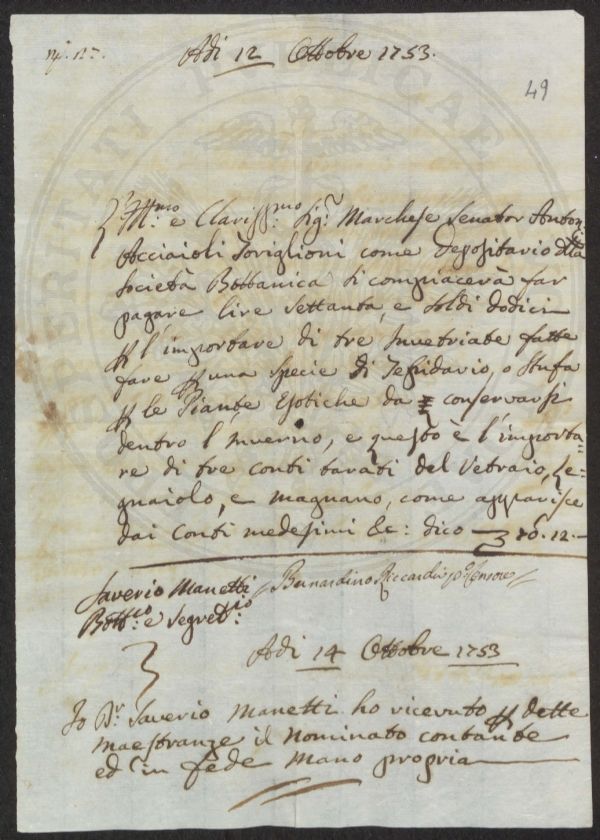 Nº. 127.
Adi 12 Ottobre 1753.
49
Ill:mo e Clariss:mo Sig:r Marchese Senator Anton
Acciaioli Toriglioni come Depositario dlla
Società Bottanica si compiacerà far
pagare lire settanta, e soldi dodici
p l'importare di tre Invetriate fatte
fare p una specie di Tepidario, o Stufa
p le Piante Esotiche da conservarsi
dentro l'Inverno, e questo è l'importa=
re di tre conti tarati del Vetraio, Le=
gnaiolo, e Magnano, come apparisce
dai Conti medesimi &c: dico 70.12.
Saverio Manetti Bernardino Riccardi
Bott:co e Segret:rio
Adi 14 Ottobre 1753
Io D:r Saverio Manetti ho ricevuto p dette
maestranze il Nominato contante
ed in fede mano propria